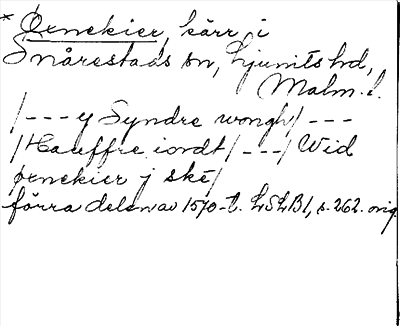 * Ørnekier, kärr i
Snårestads sn, Ljunits hd,
Malm. l.
/--- y Syndre wongh/ ---
/Hauffre iordt/ ---/ Wid
ørnekier j ske/
förra delen av 1570-t. LSLB1, s. 262. orig.